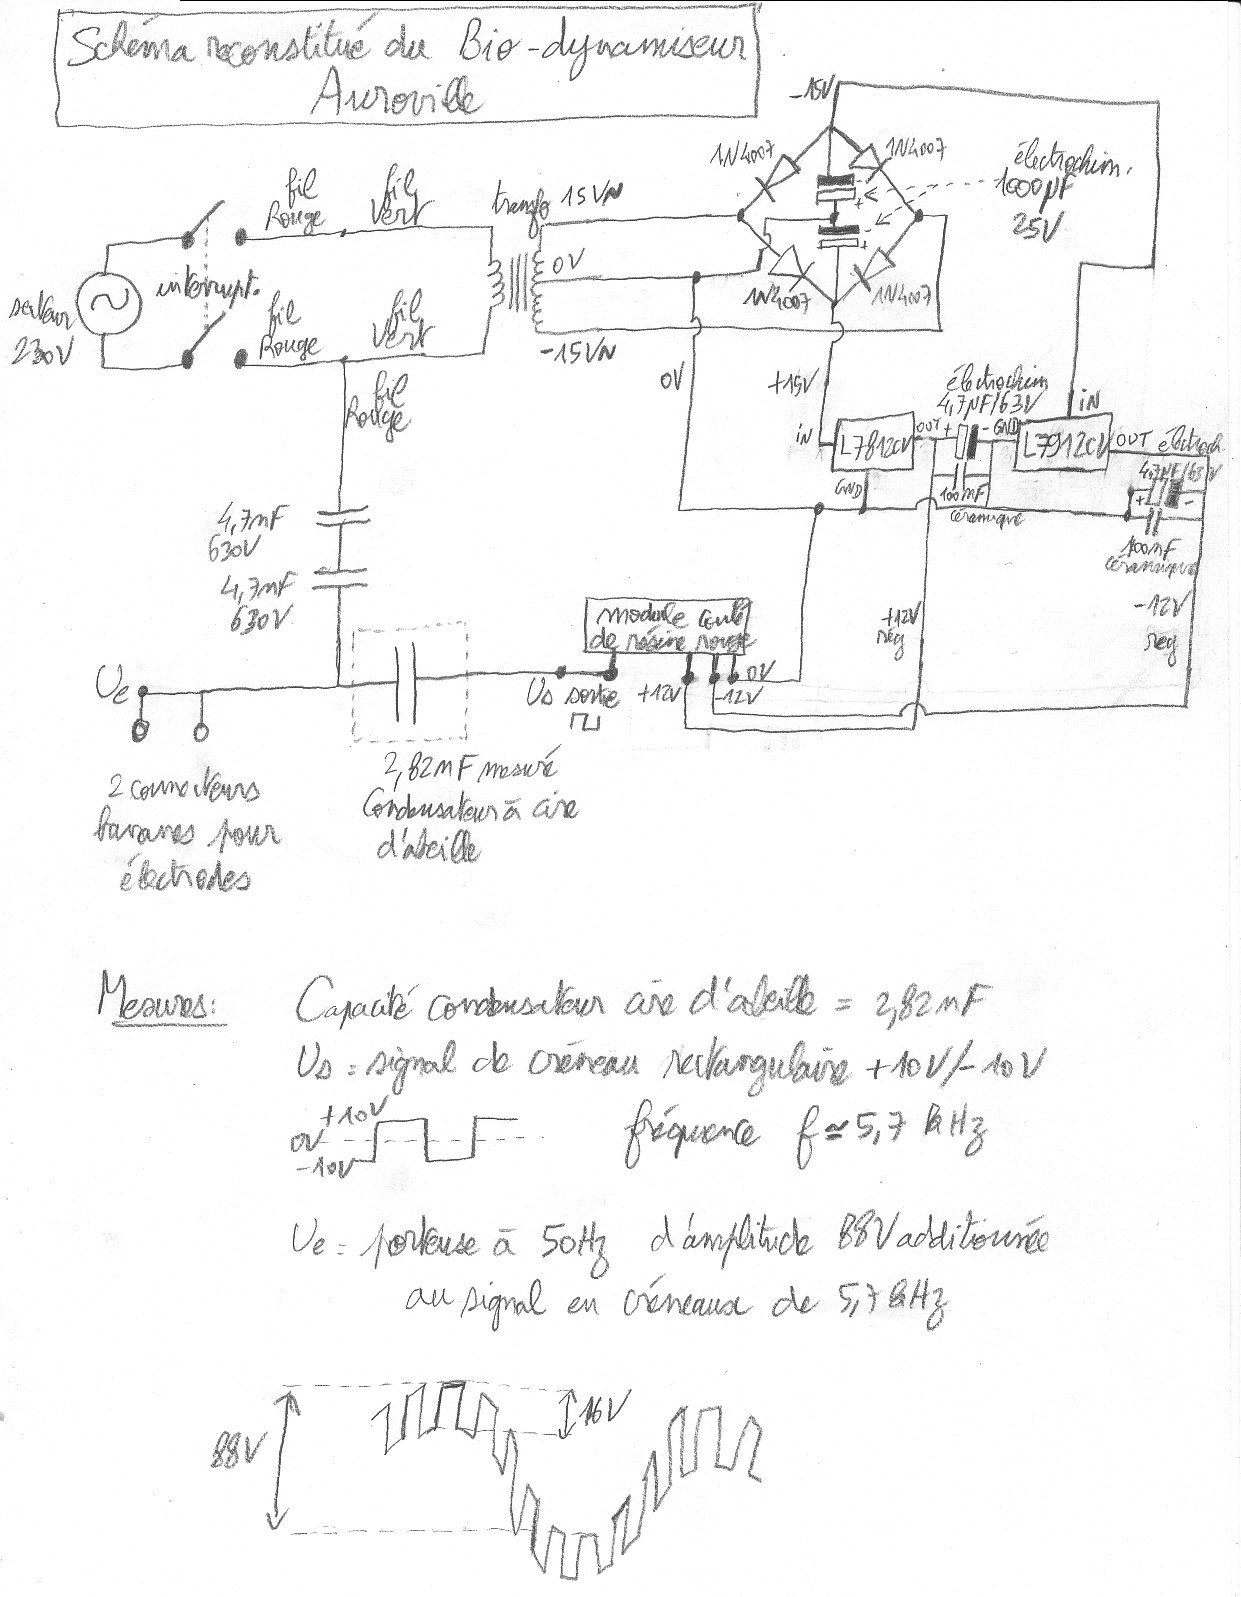 Schéma reconstitué du Bio-dynamiseur
Auroville
-15V
1N4007
1N4007
électrochim.
1000µF
25V
fil
Rouge
fil
Vert
transfo 15V~
0V
-15V~
secteur
230V
interrupt.
fil
Rouge
fil
Vert
fil
Rouge
1N4007
1N4007
0V
+15V
électrochim
4,7µF/63V
iN
L7812CV
OUT
+
- GND
iN
L7912CV
OUT
électroch.
4,7µF/63V
+
-
GND
100nF
céramique
100nF
céramique
-12V
reg
+12V
rég
4,7nF
630V
4,7nF
630V
module coulé
de résine rouge
Ue
Us sortie
+12V
-12V
0V
2,82nF mesuré
Condensateur à cire
d'abeille
2 connecteurs
bananes pour
électrodes
Mesures:
Capacité condensateur cire d'abeille = 2,82nF
Us = signal de créneau rectangulaire +10V/-10V
+10V
0V
-10V
fréquence f ≃ 5,7 kHz
Ue = porteuse à 50Hz d'amplitude 88V additionnée
au signal en créneaux de 5,7kHz
88V
16V